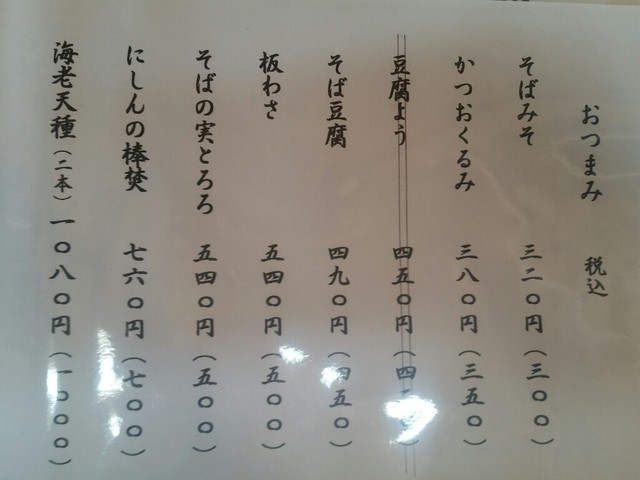 おつまみ 税込
そばみそ 三二〇円(三〇〇)
かつおくるみ 三八〇円(三五〇)
豆腐よう 四五〇円(四二〇)
そば豆腐 四九〇円(四五〇)
板わさ 五四〇円(五〇〇)
そばの実とろろ 五四〇円(五〇〇)
にしんの棒焚 七六〇円(七〇〇)
海老天種(二本)一〇八〇円(一〇〇〇)